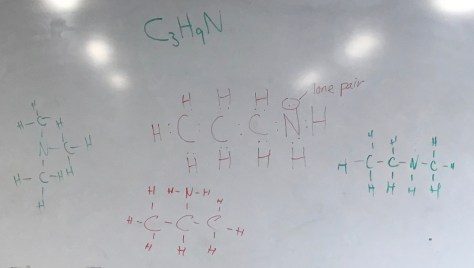 C3H9N
lone pair
H H H
H : C : C : C : N : H
H H H H
H
H - C - H
N - C - H
H - C - H H
H
H H H
H - C - C - N - C - H
H H H H
H H - N - H H
H - C - C - C - H
H H H